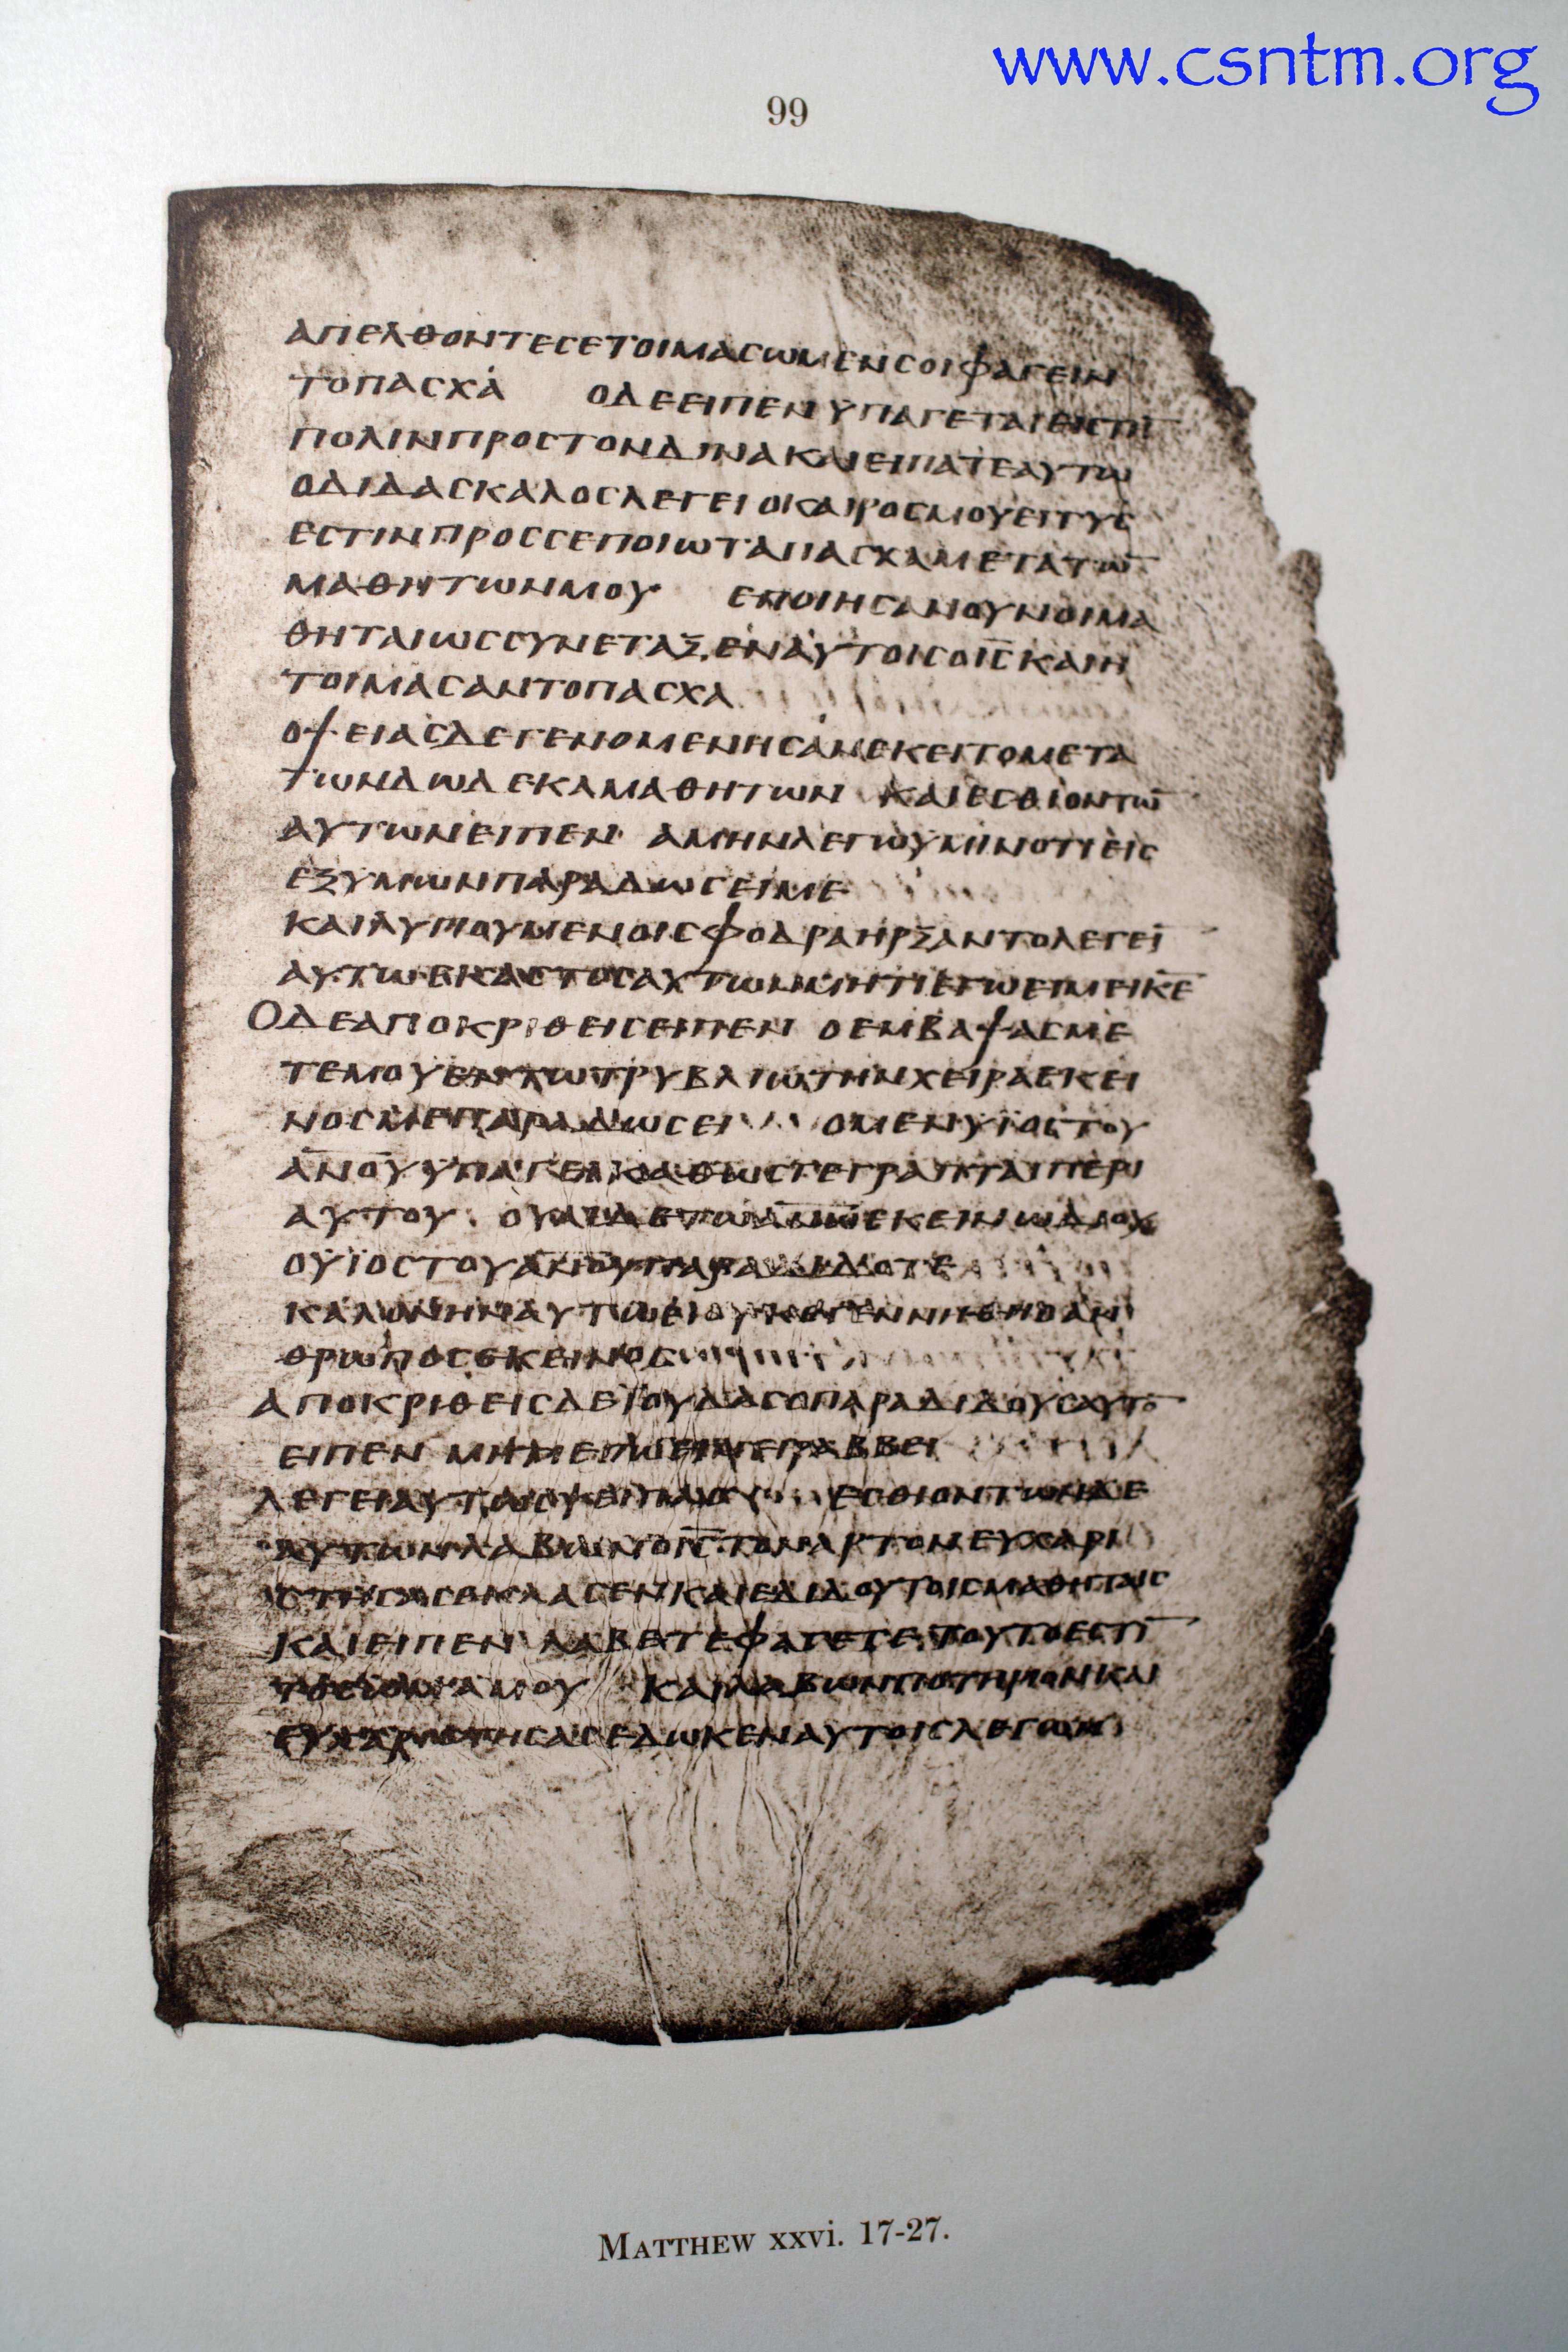 www.csntm.org
99
ΑΠΕΛΘΟΝΤΕСΕΤΟΙΜΑСωΜΕΝСΟΙΦΑΓΕΙΝ
ΤΟΠΑСΧΑ ΟΔΕΕΙΠΕΝΥΠΑΓΕΤΑΙΕΙСΤΗ̅
ΠΟΛΙΝΠΡΟСΤΟΝΔΙΝΑΚΑΙΕΙΠΑΤΕΑΥΤω
ΟΔΙΔΑСΚΑΛΟСΛΕΓΕΙΟΚΑΙΡΟСΜΟΥΕΓΓΥС
ΕСΤΙΝΠΡΟССΕΠΟΙωΤΑΠΑСΧΑΜΕΤΑΤω̅
ΜΑΘΗΤωΝΜΟΥ ΕΠΟΙΗСΑΝΟΥΝΟΙΜΑ
ΘΗΤΑΙωССΥΝΕΤΑΞΕΝΑΥΤΟΙСΟΙ̅С̅ΚΑΙΗ
ΤΟΙΜΑСΑΝΤΟΠΑСΧΑ
ΟΨΕΙΑСΔΕΓΕΝΟΜΕΝΗСΑΝΕΚΕΙΤΟΜΕΤΑ
ΤωΝΔωΔΕΚΑΜΑΘΗΤωΝ ΚΑΙΕСΘΙΟΝΤω̅
ΑΥΤωΝΕΙΠΕΝ ΑΜΗΝΛΕΓωΥΜΙΝΟΤΙΕΙС
ΕΞΥΜωΝΠΑΡΑΔωСΕΙΜΕ
ΚΑΙΛΥΠΟΥΜΕΝΟΙСΦΟΔΡΑΗΡΞΑΝΤΟΛΕΓΕΙ̅
ΑΥΤωΕΚΑСΤΟСΑΥΤωΝΜΗΤΙΕΓωΕΙΜΕΙΚ̅Ε̅
ΟΔΕΑΠΟΚΡΙΘΕΙСΕΙΠΕΝ ΟΕΜΒΑΨΑСΜΕ
ΤΕΜΟΥΕΝΤωΤΡΥΒΛΙωΤΗΝΧΕΙΡΑΕΚΕΙ
ΝΟСΜΕΠΑΡΑΔωСΕΙ ΟΜΕΝΥΪΟСΤΟΥ
Α̅Ν̅Ο̅Υ̅ΥΠΑΓΕΙΚΑΘωСΓΕΓΡΑΠΤΑΙΠΕΡΙ
ΑΥΤΟΥ ΟΥΑΙΔΕΤωΑ̅Ν̅ω̅ΕΚΕΙΝωΔΙΟΥ
ΟΥΪΟСΤΟΥΑ̅Ν̅Ο̅Υ̅ΠΑΡΑΔΙΔΟΤΕ
ΚΑΛΟΝΗΝΑΥΤωΕΙΟΥΚΕΓΕΝΝΗΘΗΟΑΝ
ΘΡωΠΟСΕΚΕΙΝΟС
ΑΠΟΚΡΙΘΕΙСΔΕΪΟΥΔΑСΟΠΑΡΑΔΙΔΟΥСΑΥΤΟ̅
ΕΙΠΕΝ ΜΗΤΙΕΓωΕΙΜΕΙΡΑΒΒΕΙ
ΛΕΓΕΙΑΥΤωСΥΕΙΠΑС ΕСΘΙΟΝΤωΝΔΕ
ΑΥΤωΝΛΑΒωΝΟΙ̅С̅ΤΟΝΑΡΤΟΝΕΥΧΑΡΙ
СΤΗСΑСΕΚΛΑСΕΝΚΑΙΕΔΙΔΟΥΤΟΙСΜΑΘΗΤΑΙС
ΚΑΙΕΙΠΕΝ ΛΑΒΕΤΕΦΑΓΕΤΕΤΟΥΤΟΕСΤΙ̅
ΤΟСωΜΑΜΟΥ ΚΑΙΛΑΒωΝΠΟΤΗΡΙΟΝΚΑΙ
ΕΥΧΑΡΙСΤΗСΑСΕΔωΚΕΝΑΥΤΟΙСΛΕΓωΝ
MATTHEW xxvi. 17-27.